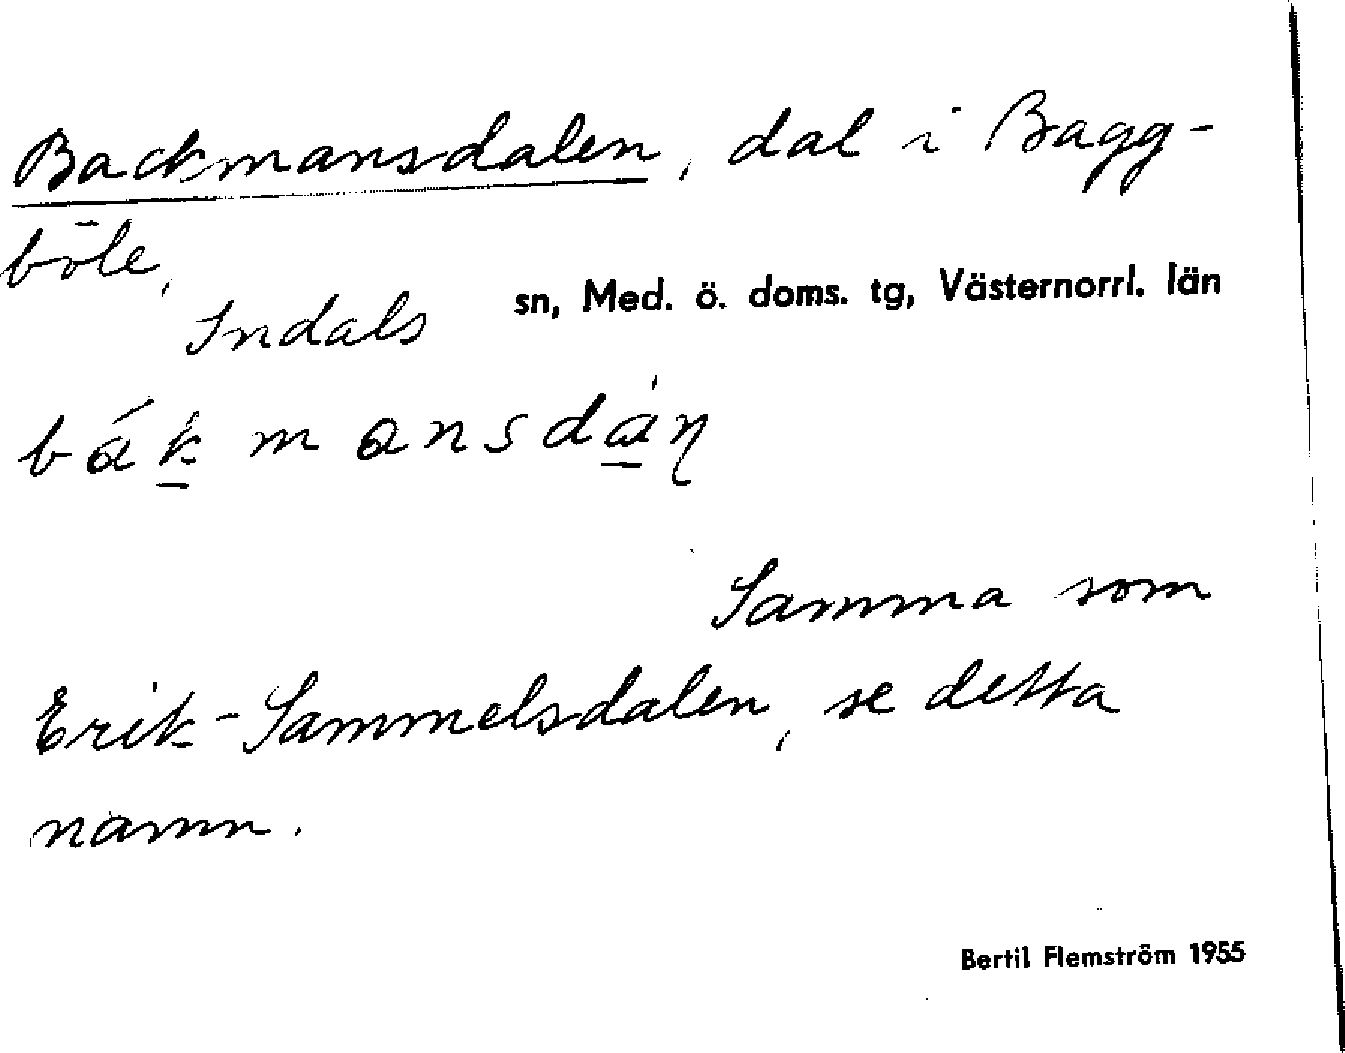 Backmansdalen, dal i Bagg-
böle,
Indals sn, Med. ö. doms. tg, Västernorrl. län
bák mansdáɳ
Samma som
Erik-Sammelsdalen, se detta
namn.
Bertil Flemström 1955